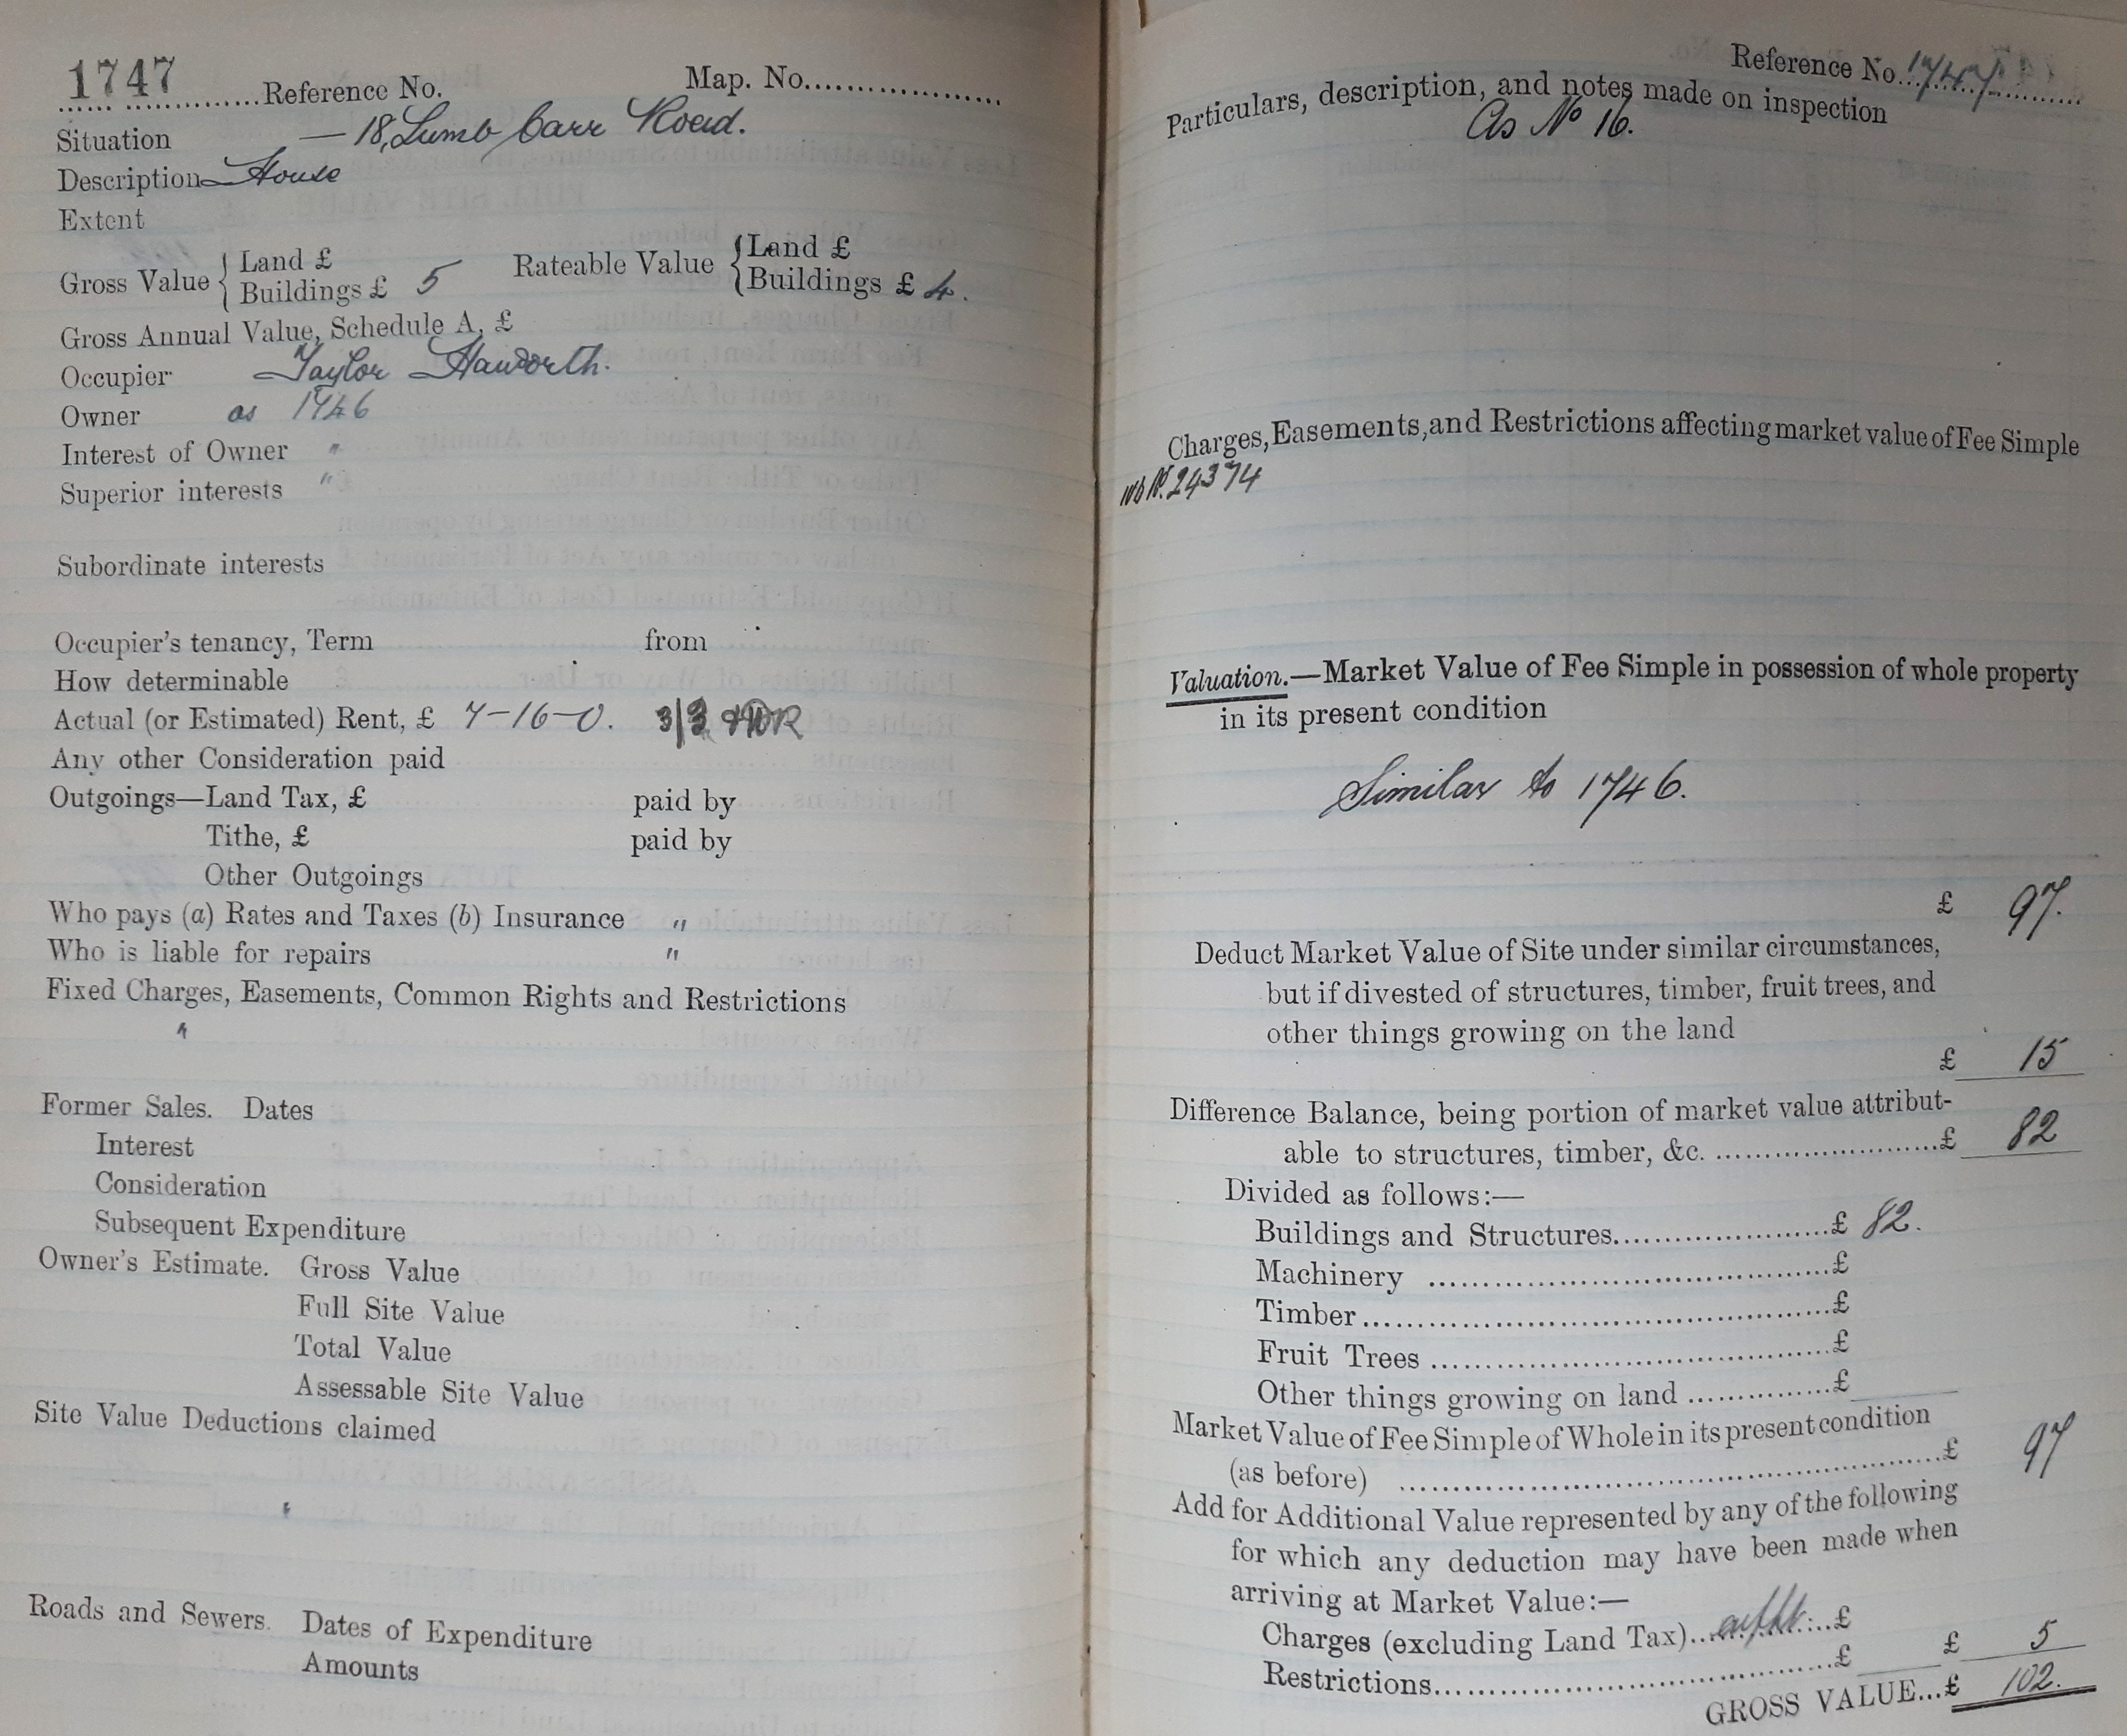 1747
Reference No. Map. No.
Situation — 18, Lumb Carr Road.
Description House
Extent
Gross Value { Land £
Buildings £ 5
Rateable Value { Land £
Buildings £ 4.
Gross Annual Value, Schedule A, £
Occupier Taylor Haworth.
Owner as 1746
Interest of Owner "
Superior interests "
Subordinate interests
Occupier's tenancy, Term from
How determinable
Actual (or Estimated) Rent, £ 7-16-0. 3/3
Any other Consideration paid
Outgoings—Land Tax, £ paid by
Tithe, £ paid by
Other Outgoings
Who pays (a) Rates and Taxes (b) Insurance "
Who is liable for repairs "
Fixed Charges, Easements, Common Rights and Restrictions
"
Former Sales. Dates
Interest
Consideration
Subsequent Expenditure
Owner's Estimate. Gross Value
Full Site Value
Total Value
Assessable Site Value
Site Value Deductions claimed
Roads and Sewers. Dates of Expenditure
Amounts
Reference No. 1747
Particulars, description, and notes made on inspection
As No 16.
Charges, Easements, and Restrictions affecting market value of Fee Simple
24374
Valuation.—Market Value of Fee Simple in possession of whole property
in its present condition
Similar to 1746.
£ 97.
Deduct Market Value of Site under similar circumstances,
but if divested of structures, timber, fruit trees, and
other things growing on the land
£ 15
Difference Balance, being portion of market value attribut-
able to structures, timber, &c. £ 82
Divided as follows:—
Buildings and Structures £ 82.
Machinery £
Timber £
Fruit Trees £
Other things growing on land £
Market Value of Fee Simple of Whole in its present condition
(as before) £ 97
Add for Additional Value represented by any of the following
for which any deduction may have been made when
arriving at Market Value:—
Charges (excluding Land Tax) £
Restrictions £ £ 5
GROSS VALUE...£ 102.